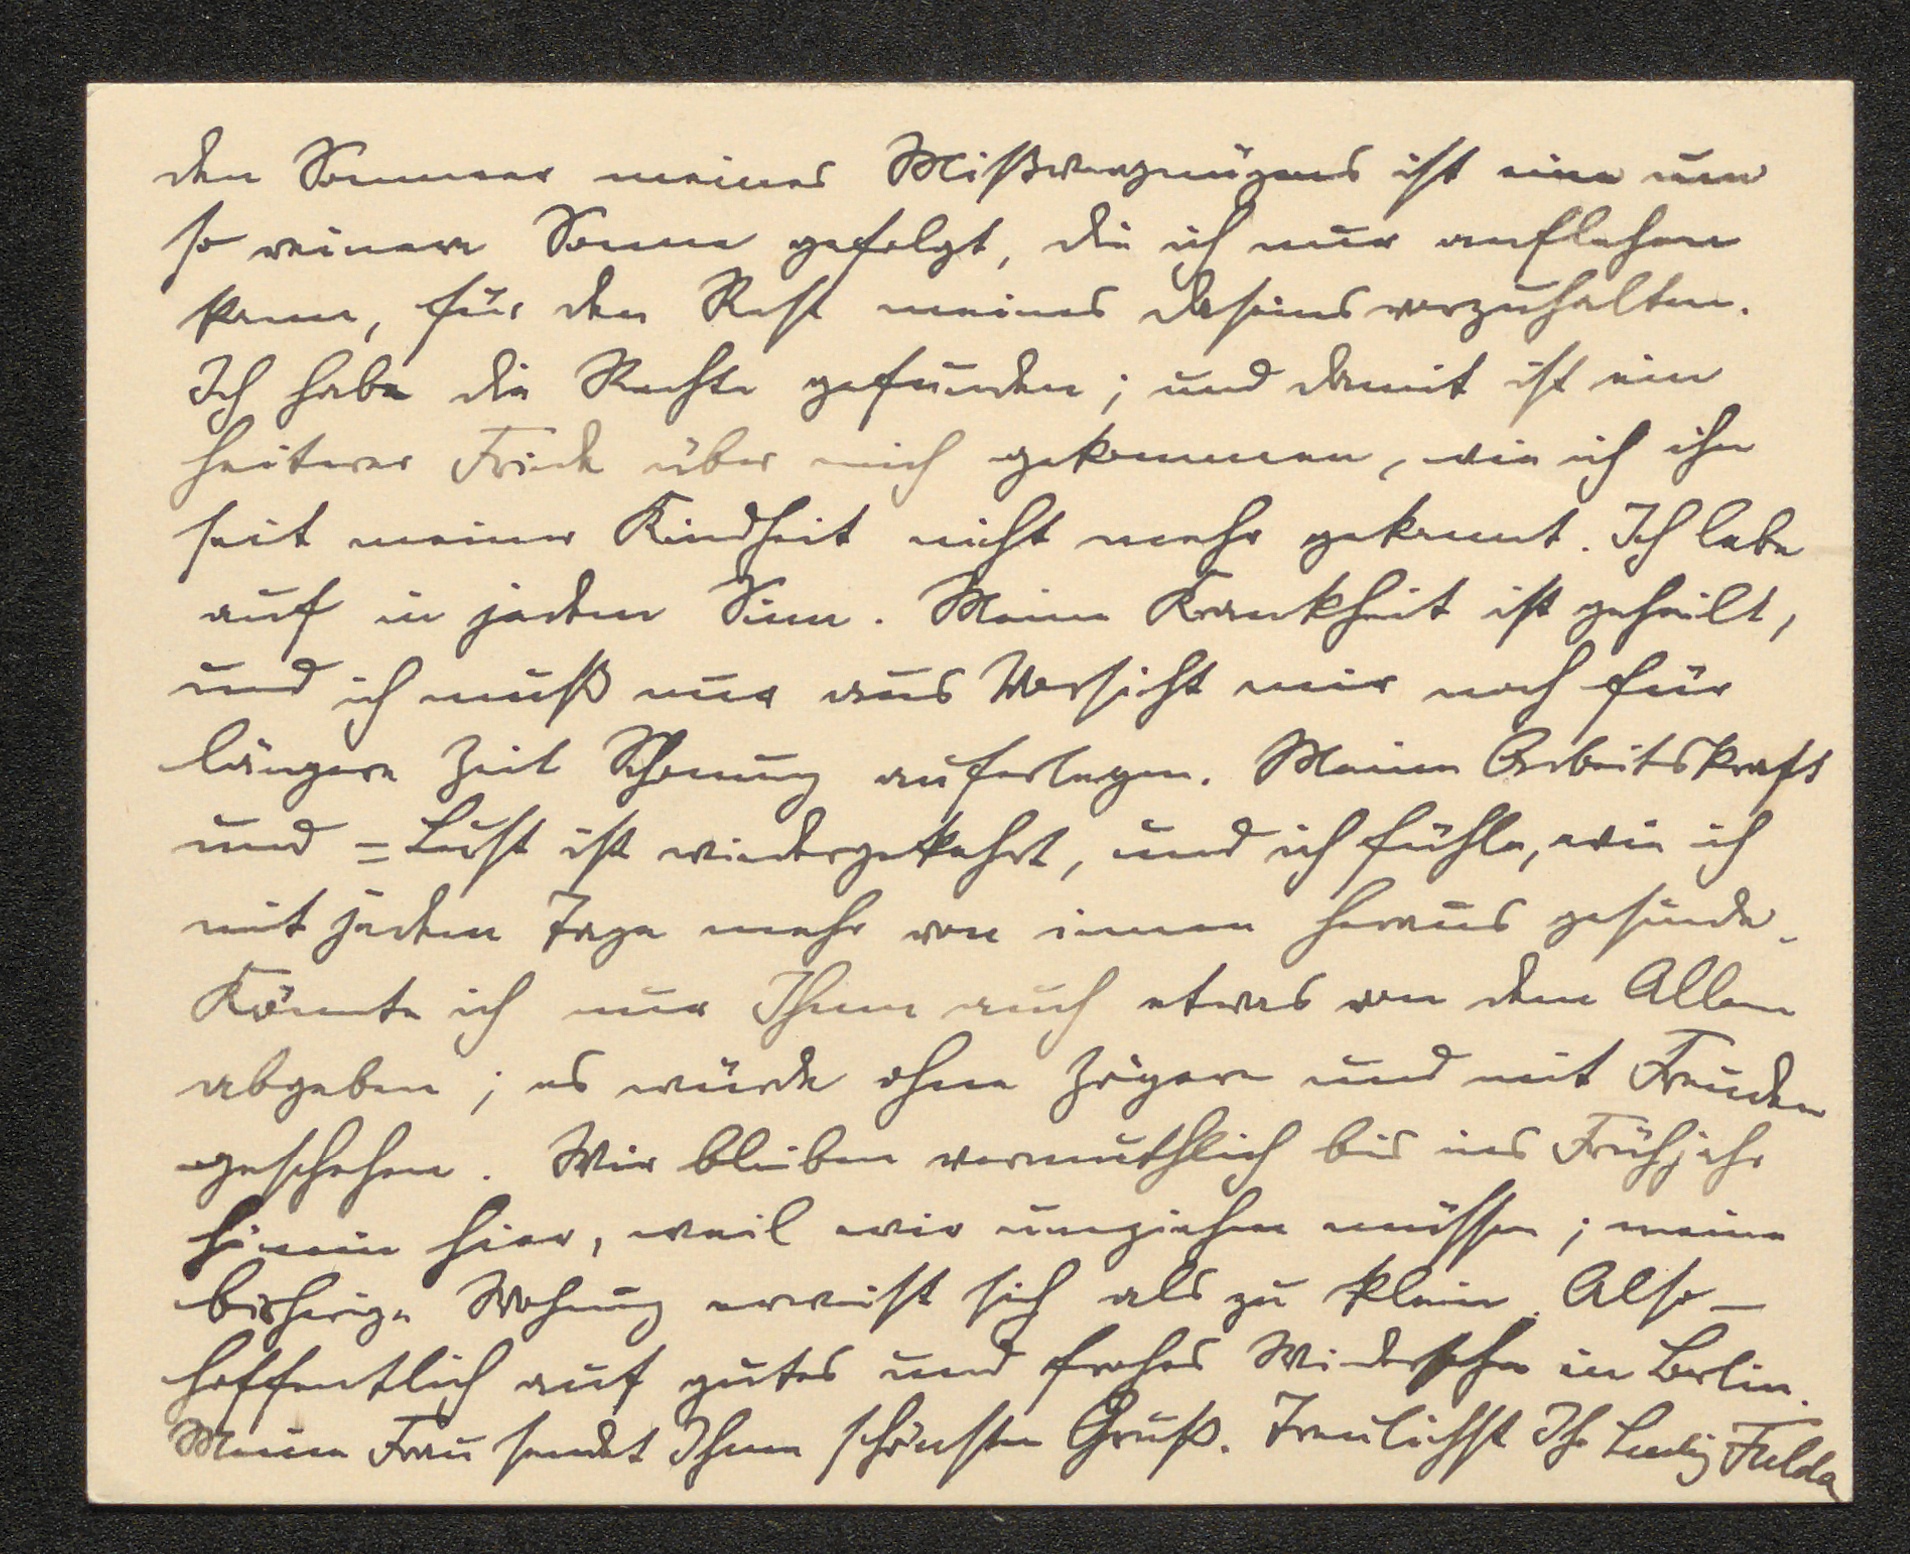 den Sommer meines Mißvergnügens ist eine um
so reinere Sonne gefolgt, die ich nur anflehen
kann, für den Rest meines Daseins vorzuhalten.
Ich habe die Rechte gefunden; und damit ist ein
heiterer Friede über mich gekommen, wie ich ihn
seit meiner Kindheit nicht mehr gekannt. Ich lebe
auf in jedem Sinn. Meine Krankheit ist geheilt,
und ich muß nur aus Vorsicht mir noch für
längere Zeit Schonung auferlegen. Meine Arbeitskraft
und =Lust ist wiedergekehrt, und ich fühle, wie ich
mit jedem Tage mehr von innen heraus gesunde.
Könnte ich nur Ihnen auch etwas von dem Allen
abgeben; es würde ohne Zögern und mit Freuden
geschehen. Wir bleiben vermuthlich bis ins Frühjahr
hinein hier, weil wir umziehen müssen; meine
bisherige Wohnung erweist sich als zu klein. Also –
hoffentlich auf gutes und frohes Wiedersehn in Berlin.
Meine Frau sendet Ihnen schönsten Gruß. Treulichst Ihr Ludwig Fulda